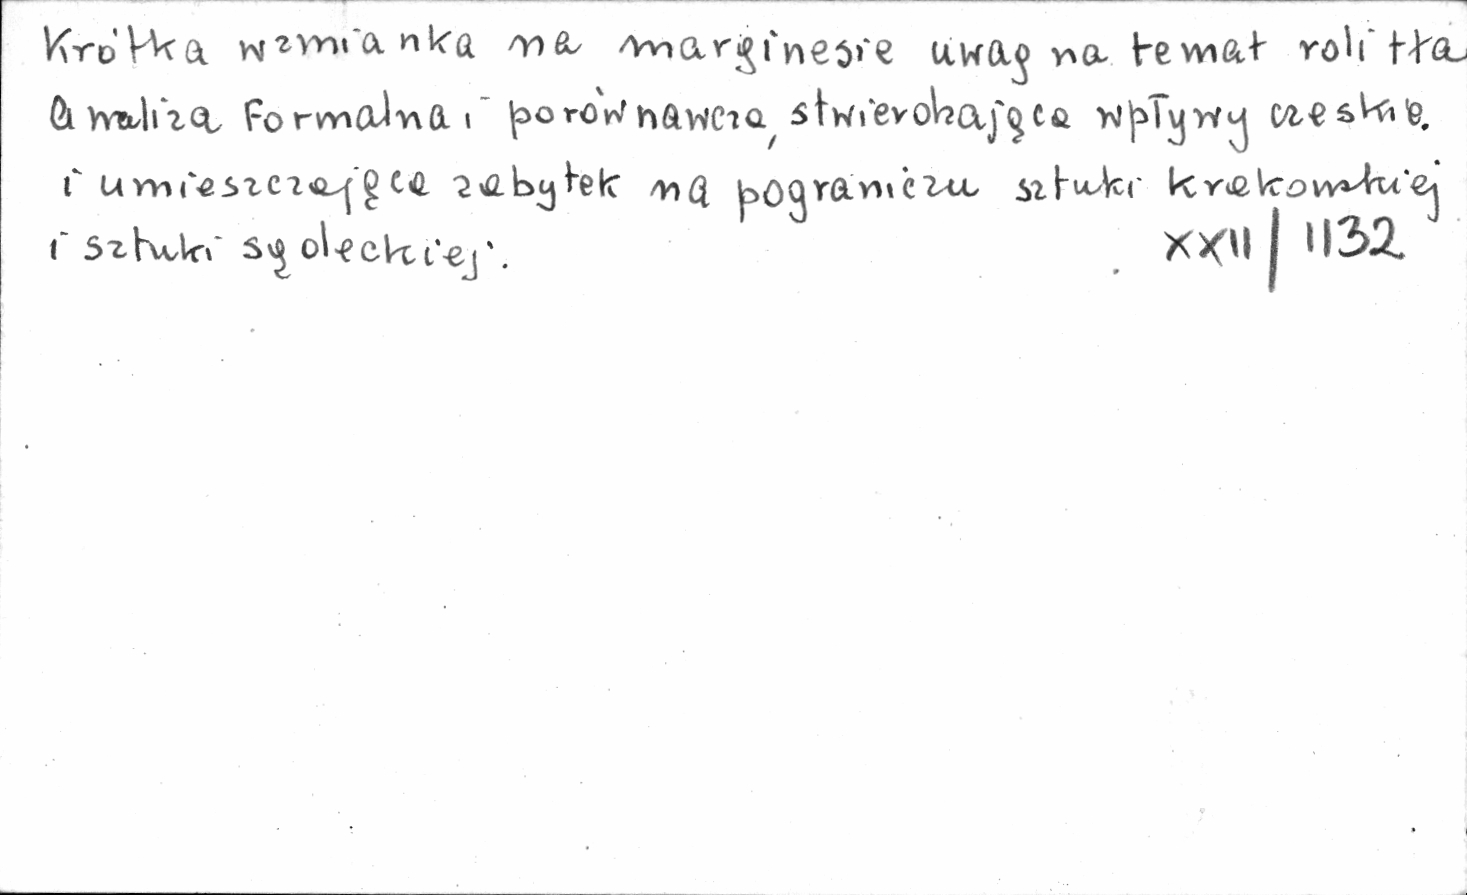 Krótka wzmianka na marginesie uwag na temat roli tła
Analiza formalna i porównawcza, stwierdzająca wpływy czeskie.
i umieszczająca zabytek na pograniczu sztuki krakowskiej
i sztuki sądeckiej.
XXII/1132